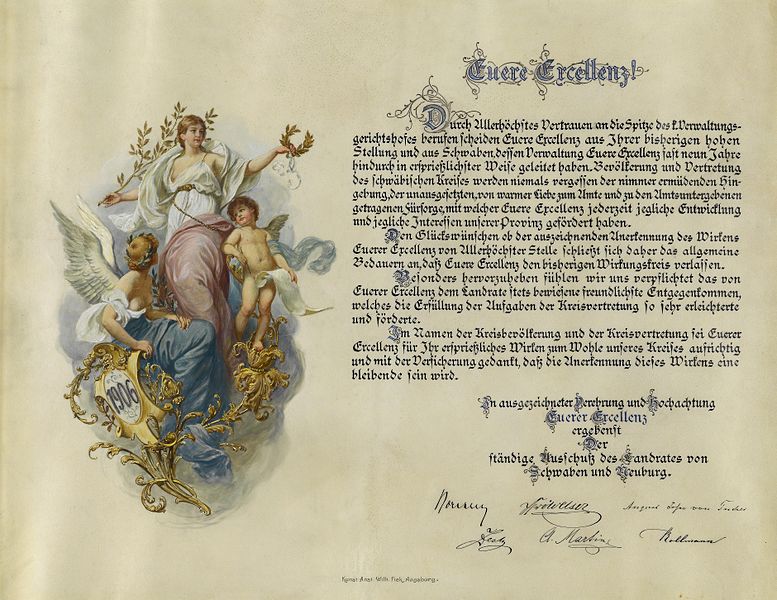 Euere Excellenz!
Durch Allerhöchstes Vertrauen an die Spitze des k. Verwaltungs-
gerichtshofes berufen scheiden Euere Excellenz aus Ihrer bisherigen hohen
Stellung und aus Schwaben, dessen Verwaltung Euere Excellenz fast neun Jahre
hindurch in ersprießlichster Weise geleitet haben. Bevölkerung und Vertretung
des schwäbischen Kreises werden niemals vergessen der nimmer ermüdenden Hin-
gebung, der unausgesetzten, von warmer Liebe zum Amte und zu den Amtsuntergebenen
getragenen Fürsorge, mit welcher Euere Excellenz jederzeit jegliche Entwicklung
und jegliche Interessen unserer Provinz gefördert haben.
Den Glückswünschen ob der auszeichnenden Anerkennung des Wirkens
Euerer Excellenz von Allerhöchster Stelle schließt sich daher das allgemeine
Bedauern an, daß Euere Excellenz den bisherigen Wirkungskreis verlassen.
Besonders hervorzuheben fühlen wir uns verpflichtet das von
Euerer Excellenz dem Landrate stets bewiesene freundlichste Entgegenkommen,
welches die Erfüllung der Aufgaben der Kreisvertretung so sehr erleichterte
und förderte.
Im Namen der Kreisbevölkerung und der Kreisvertretung sei Euerer
Excellenz für Ihr ersprießliches Wirken zum Wohle unseres Kreises aufrichtig
und mit der Versicherung gedankt, daß die Anerkennung dieses Wirkens eine
bleibende sein wird.
In ausgezeichneter Verehrung und Hochachtung
Euerer Excellenz
ergebenst
Der
ständige Ausschuß des Landrates von
Schwaben und Neuburg.
August von
A. Martin Kollmann
1906
Kunst-Anst. Wilh. Fiek, Augsburg.